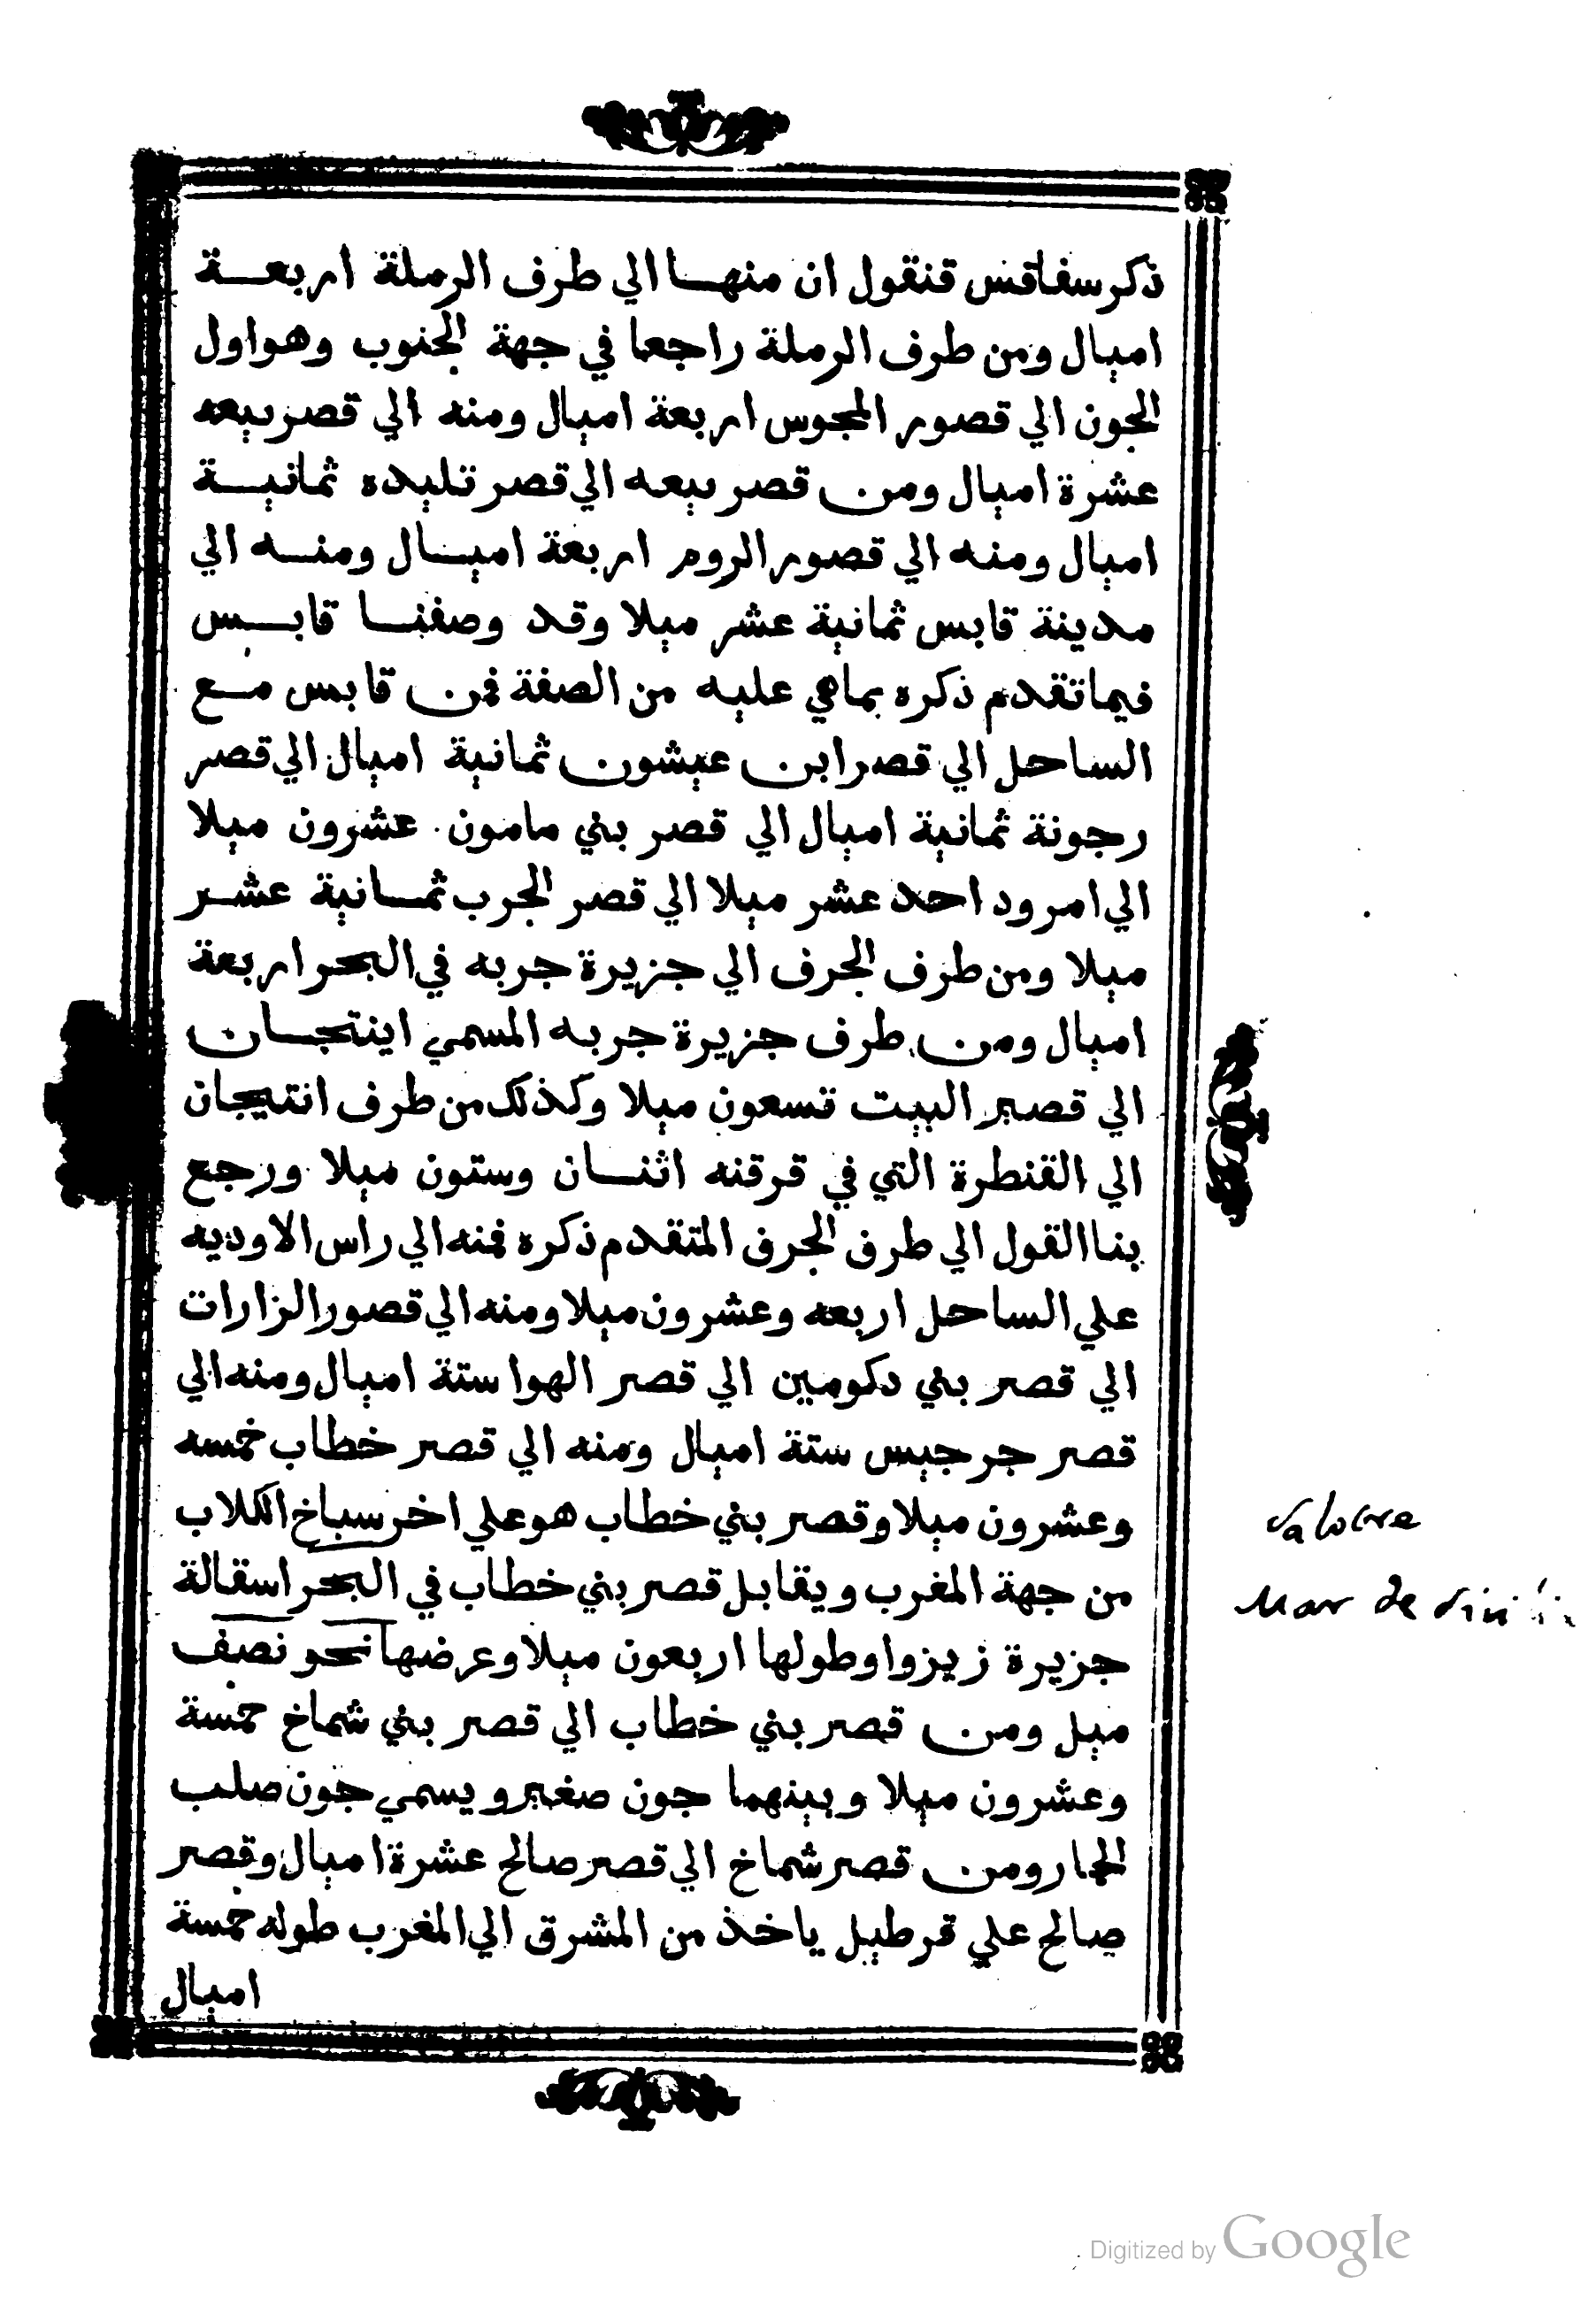 ذكر سفاقس فنقول ان منها الي طرف الرملة اربعة
اميال ومن طرف الرملة راجعا في جهة الجنوب وهو اول
الجون الي قصور المجوس اربعة اميال ومنه الي قصر بيعه
عشرة اميال ومن قصر بيعه الي قصر تليده ثمانية
اميال ومنه الي قصور الروم اربعة اميال ومنه الي
مدينة قابس ثمانية عشر ميلا وقد وصفنا قابس
فيما تقدم ذكره بما هي عليه من الصفة فمن قابس مع
الساحل الي قصر ابن عيشون ثمانية اميال الي قصر
رجونة ثمانية اميال الي قصر بني مامون عشرون ميلا
الي امرود احد عشر ميلا الي قصر الجرب ثمانية عشر
ميلا ومن طرف الجرف الي جزيرة جربه في البحر اربعة
اميال ومن طرف جزيرة جربه المسمي اينتجان
الي قصبر البيت تسعون ميلا وكذلك من طرف انتيجان
الي القنطرة التي في قرقنه اثنان وستون ميلا ورجع
بنا القول الي طرف الجرف المتقدم ذكره فمنه الي راس الاوديه
علي الساحل اربعه وعشرون ميلا ومنه الي قصور الزارات
الي قصر بني دكومين الي قصر الهوا ستة اميال ومنه الي
قصر جرجيس ستة اميال ومنه الي قصر خطاب خمسه
وعشرون ميلا وقصر بني خطاب هو علي اخر سباخ الكلاب
من جهة المغرب ويقابل قصر بني خطاب في البحر اسقالة
جزيرة زيزوا وطولها اربعون ميلا وعرضها نحو نصف
ميل ومن قصر بني خطاب الي قصر بني شماخ خمسة
وعشرون ميلا وبينهما جون صغير ويسمي جون صلب
الحمار ومن قصر شماخ الي قصر صالح عشرة اميال وقصر
صالح علي قرطيل ياخذ من المشرق الي المغرب طوله خمسة
اميال
Mar de
Digitized by Google